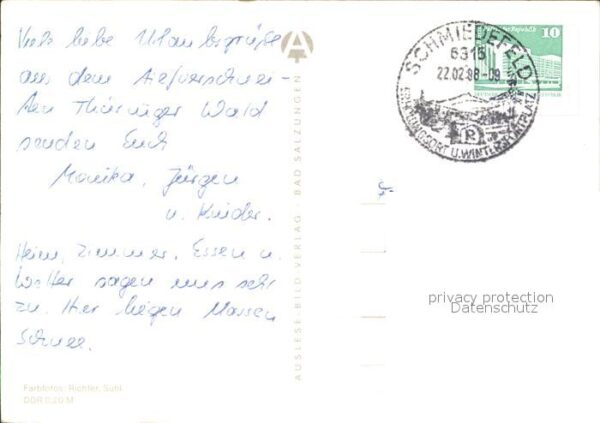 Viele liebe Urlaubsgrüße
aus dem tiefverschnei-
ten Thüringer Wald
senden Euch
Monika, Jürgen
u. Kinder.
Heim, Zimmer, Essen u.
Wetter sagen uns sehr
zu. Hier liegen Massen
Schnee.
Farbfotos: Richter, Suhl
AUSLESE-BILD-VERLAG · BAD SALZUNGEN
A
SCHMIEDEFELD
6315
22.02.88-09
ERHOLUNGSORT U. WINTERSPORTPLATZ
10
privacy protection
Datenschutz